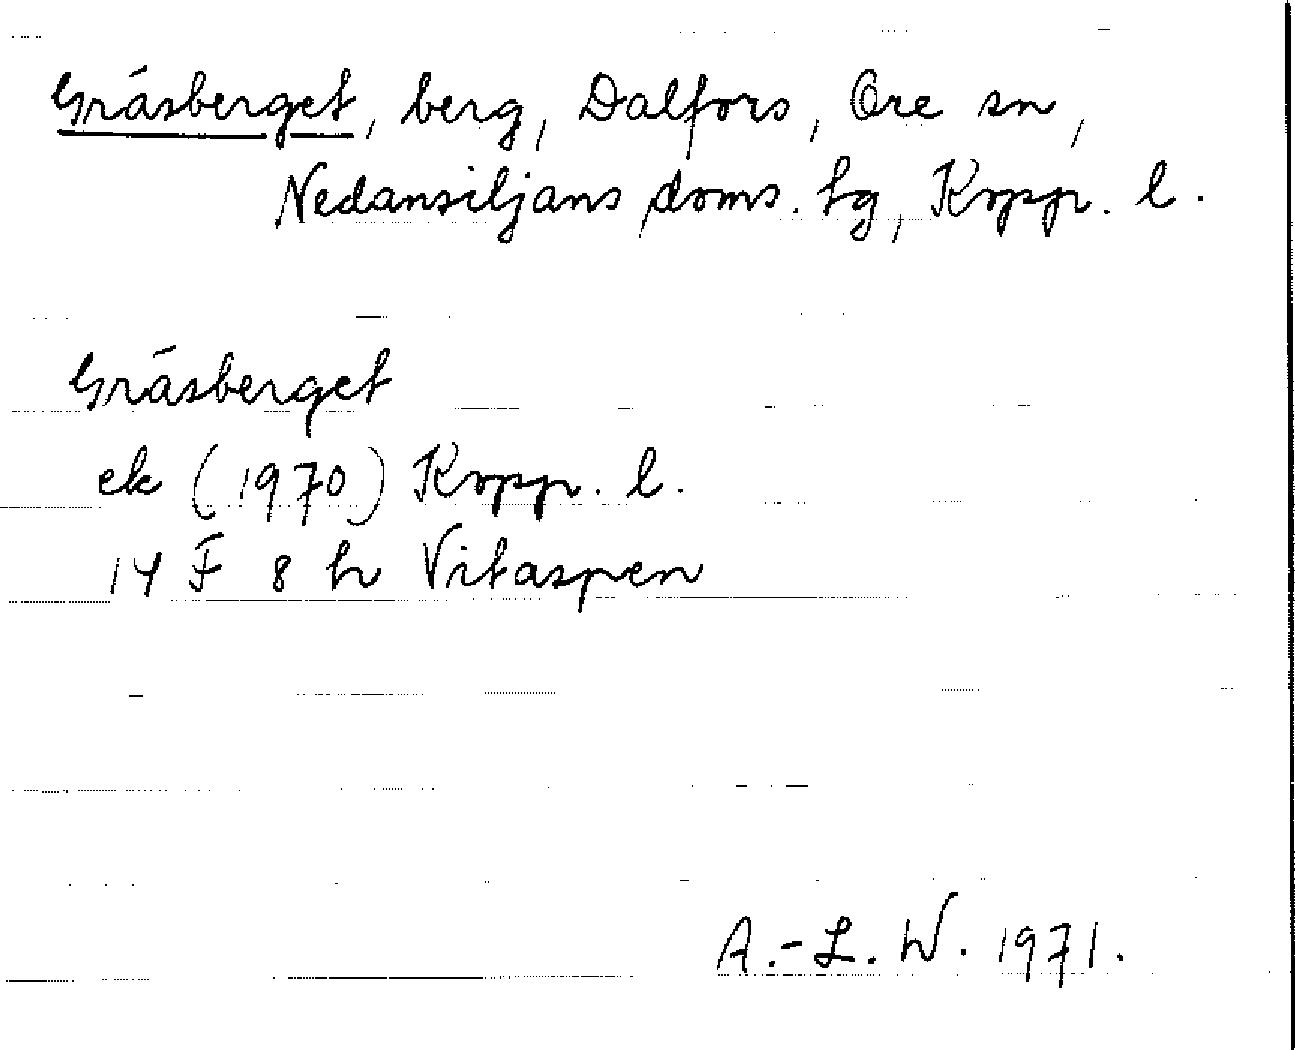 Gräsberget, berg, Dalfors, Ore sn,
Nedansiljans doms. hg, Kopp. l.
Gräsberget
ek (1970) Kopp. l.
14 F 8 h Vitaspen
A.-L. W. 1971.